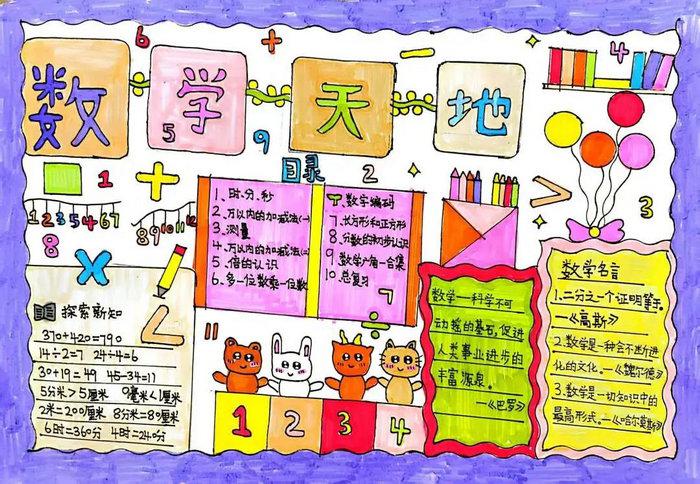 数学天地
目录
1、时、分、秒
2、万以内的加减法(一)
3、测量
4、万以内的加减法(二)
5、倍的认识
6、多一位数乘一位数
数字编码
7、长方形和正方形
8、分数的初步认识
9、数学广角一合集
10、总复习
探索新知
370+420=790
14÷2=7 24÷4=6
30+19=49 45-34=11
5分米>5厘米 9毫米<1厘米
2米=200厘米 8分米=80厘米
6时=360分 4时=240分
1 2 3 4
数学一科学不可
动摇的基石,促进
人类事业进步的
丰富源泉。
—《巴罗》
数学名言
1.二分之一个证明等于。
—《高斯》
2.数学是一种会不断进
化的文化。—《魏尔德》
3.数学是一切知识中的
最高形式。—《哈尔莫斯》